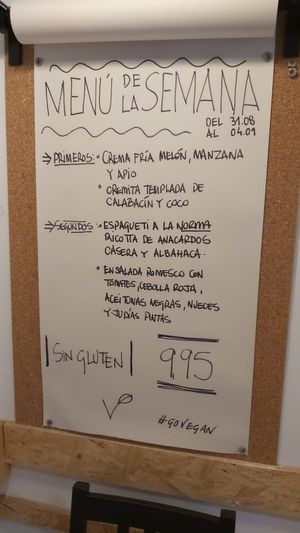 MENÚ DE LA SEMANA
DEL 31.08
AL 04.09
PRIMEROS: • CREMA FRÍA MELÓN, MANZANA
Y APIO
• CREMITA TEMPLADA DE
CALABACÍN Y COCO
SEGUNDOS: • ESPAGUETI A LA NORMA
RICOTTA DE ANACARDOS
CASERA Y ALBAHACA
• ENSALADA ROMESCO CON
TOMATES, CEBOLLA ROJA,
ACEITUNAS NEGRAS, NUECES
Y JUDÍAS PINTAS
SIN GLUTEN
9,95
V
#GOVEGAN